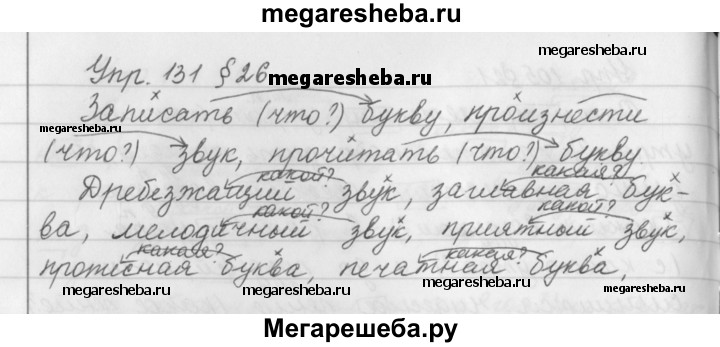 megaresheba.ru
megaresheba.ru
Упр. 131 § 26
megaresheba.ru
Записать (что?) букву, произнести
megaresheba.ru
(что?) звук, прочитать (что?) букву.
какой? какая?
Дребезжащий звук, заглавная бук-
какой? какой?
ва, мелодичный звук, приятный звук,
какая? какая?
прописная буква, печатная буква,
megaresheba.ru megaresheba.ru
Мегарешеба.ру